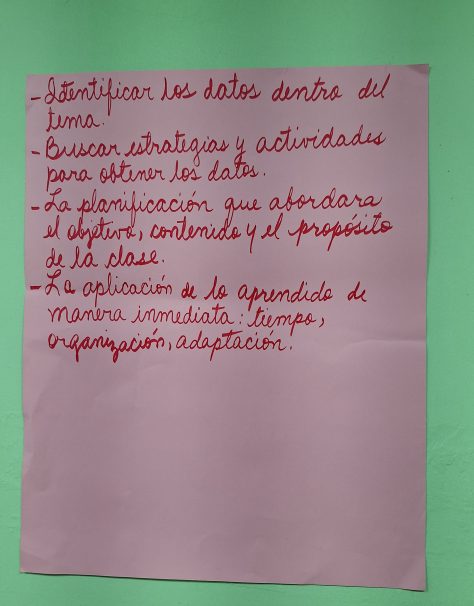 - Identificar los datos dentro del
tema.
- Buscar estrategias y actividades
para obtener los datos.
- La planificación que abordara
el objetivo, contenido y el propósito
de la clase.
- La aplicación de lo aprendido de
manera inmediata: tiempo,
organización, adaptación.